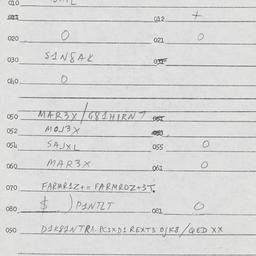 010
012 +
020 0 021 0
030 S1N8AK
040 0
050 MAR3X/G81HIRN7
052 MOJ3X
054 SAJXL 055 0
060 MAR3X 061 0
070 FARMR1Z+= FARMROZ+3T
080 $ ) P1NTLT 081 0
090 D1K81N TRA. PC3XD1 REXT3 OJK8/QED XX